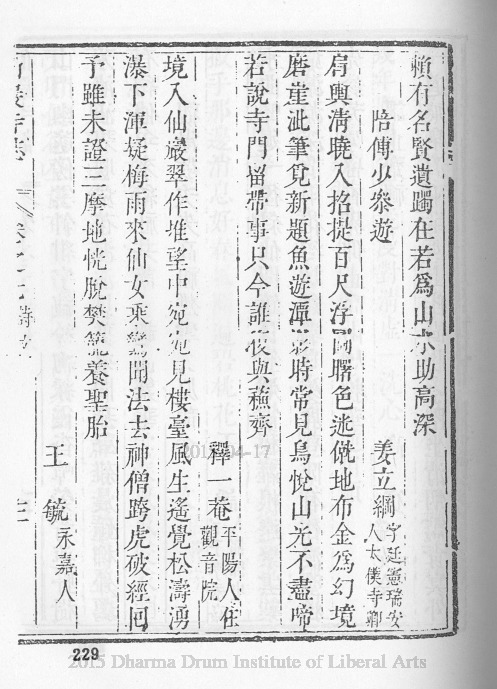 賴有名賢遺躅在若爲山水助高深
陪傅少參遊
姜立綱字廷憲瑞安人太僕寺卿
肩輿清曉入招提百尺浮圖曙色迷僥地布金爲幻境
磨崖泚筆覓新題魚遊潭影時常見鳥悅山光不盡啼
若說寺門留帶事只今誰復與蘇齊
釋一菴平陽人住觀音院
境入仙巖翠作堆望中宛宛見樓臺風生遙覺松濤湧
瀑下渾疑梅雨來仙女乘鸞聞法去神僧跨虎破經回
予雖未證三摩地恍脫樊籠養聖胎
王毓永嘉人
巖寺志 卷之 詩 三
229
2015-04-17
2015 Dharma Drum Institute of Liberal Arts